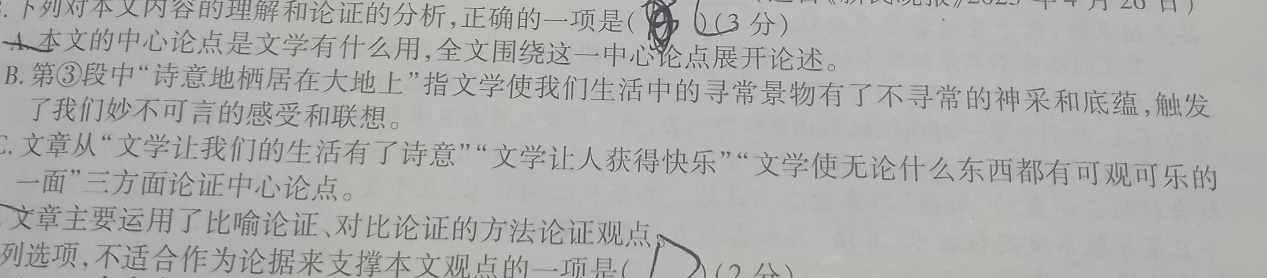 .下列对本文内容的理解和论证的分析,正确的一项是( )(3分)
A.本文的中心论点是文学有什么用,全文围绕这一中心论点展开论述。
B.第③段中“诗意地栖居在大地上”指文学使我们生活中的寻常景物有了不寻常的神采和底蕴,触发
了我们妙不可言的感受和联想。
C.文章从“文学让我们的生活有了诗意”“文学让人获得快乐”“文学使无论什么东西都有可观可乐的
一面”三方面论证中心论点。
文章主要运用了比喻论证、对比论证的方法论证观点。
列选项,不适合作为论据来支撑本文观点的一项是( )(2分)